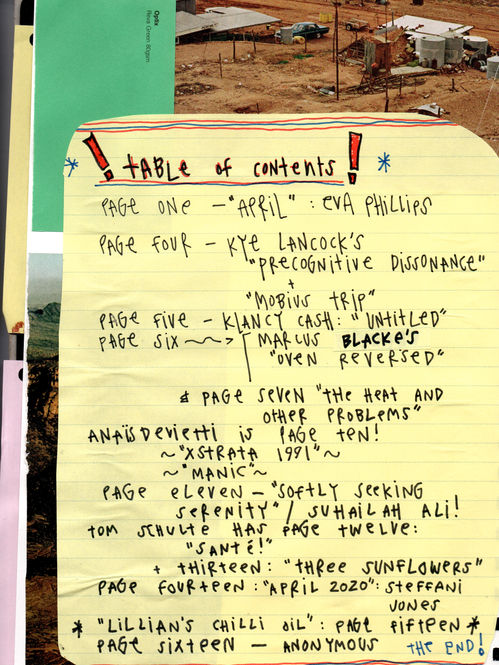 Optix
Reva Green 80gsm
! TABLE of CONTENTS! *
*
PAGE ONE - "APRIL" : EVA PHILLIPS
PAGE FOUR - KYE LANCOCK'S
"PRECOGNITIVE DISSONANCE"
+
"MOBIUS TRIP"
PAGE FIVE - KLANCY CASH: "UNTITLED"
PAGE SIX ~~> MARCUS BLACKE'S
"OVEN REVERSED"
& PAGE SEVEN "THE HEAT AND
OTHER PROBLEMS"
ANAÏS DEVIETTI is PAGE TEN!
~"XSTRATA 1991"~
~"MANIC"~
PAGE ELEVEN - "SOFTLY SEEKING
SERENITY" / SUHAILAH ALI!
TOM SCHULTE HAS PAGE TWELVE:
"SANTÉ!"
+ THIRTEEN: "THREE SUNFLOWERS"
PAGE FOURTEEN: "APRIL 2020": STEFFANI
JONES
* "LILLIAN'S CHILLI OIL": PAGE FIFTEEN *
PAGE SIXTEEN - ANONYMOUS THE END!